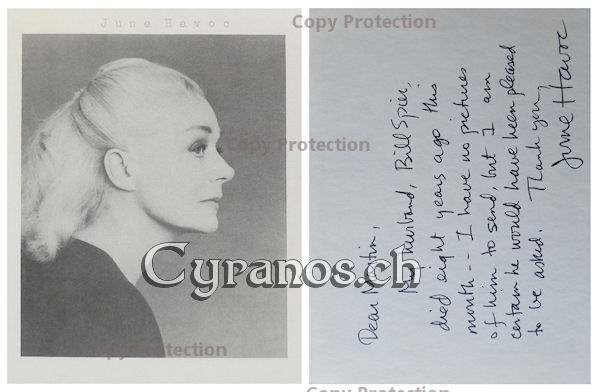 June Havoc
Copy Protection
Copy Protection
Cyranos.ch
Copy Protection
Copy Protection
Dear Martin,
My husband, Bill Spier,
died eight years ago this
month -- I have no pictures
of him to send, but I am
certain he would have been pleased
to be asked. Thank you,
June Havoc